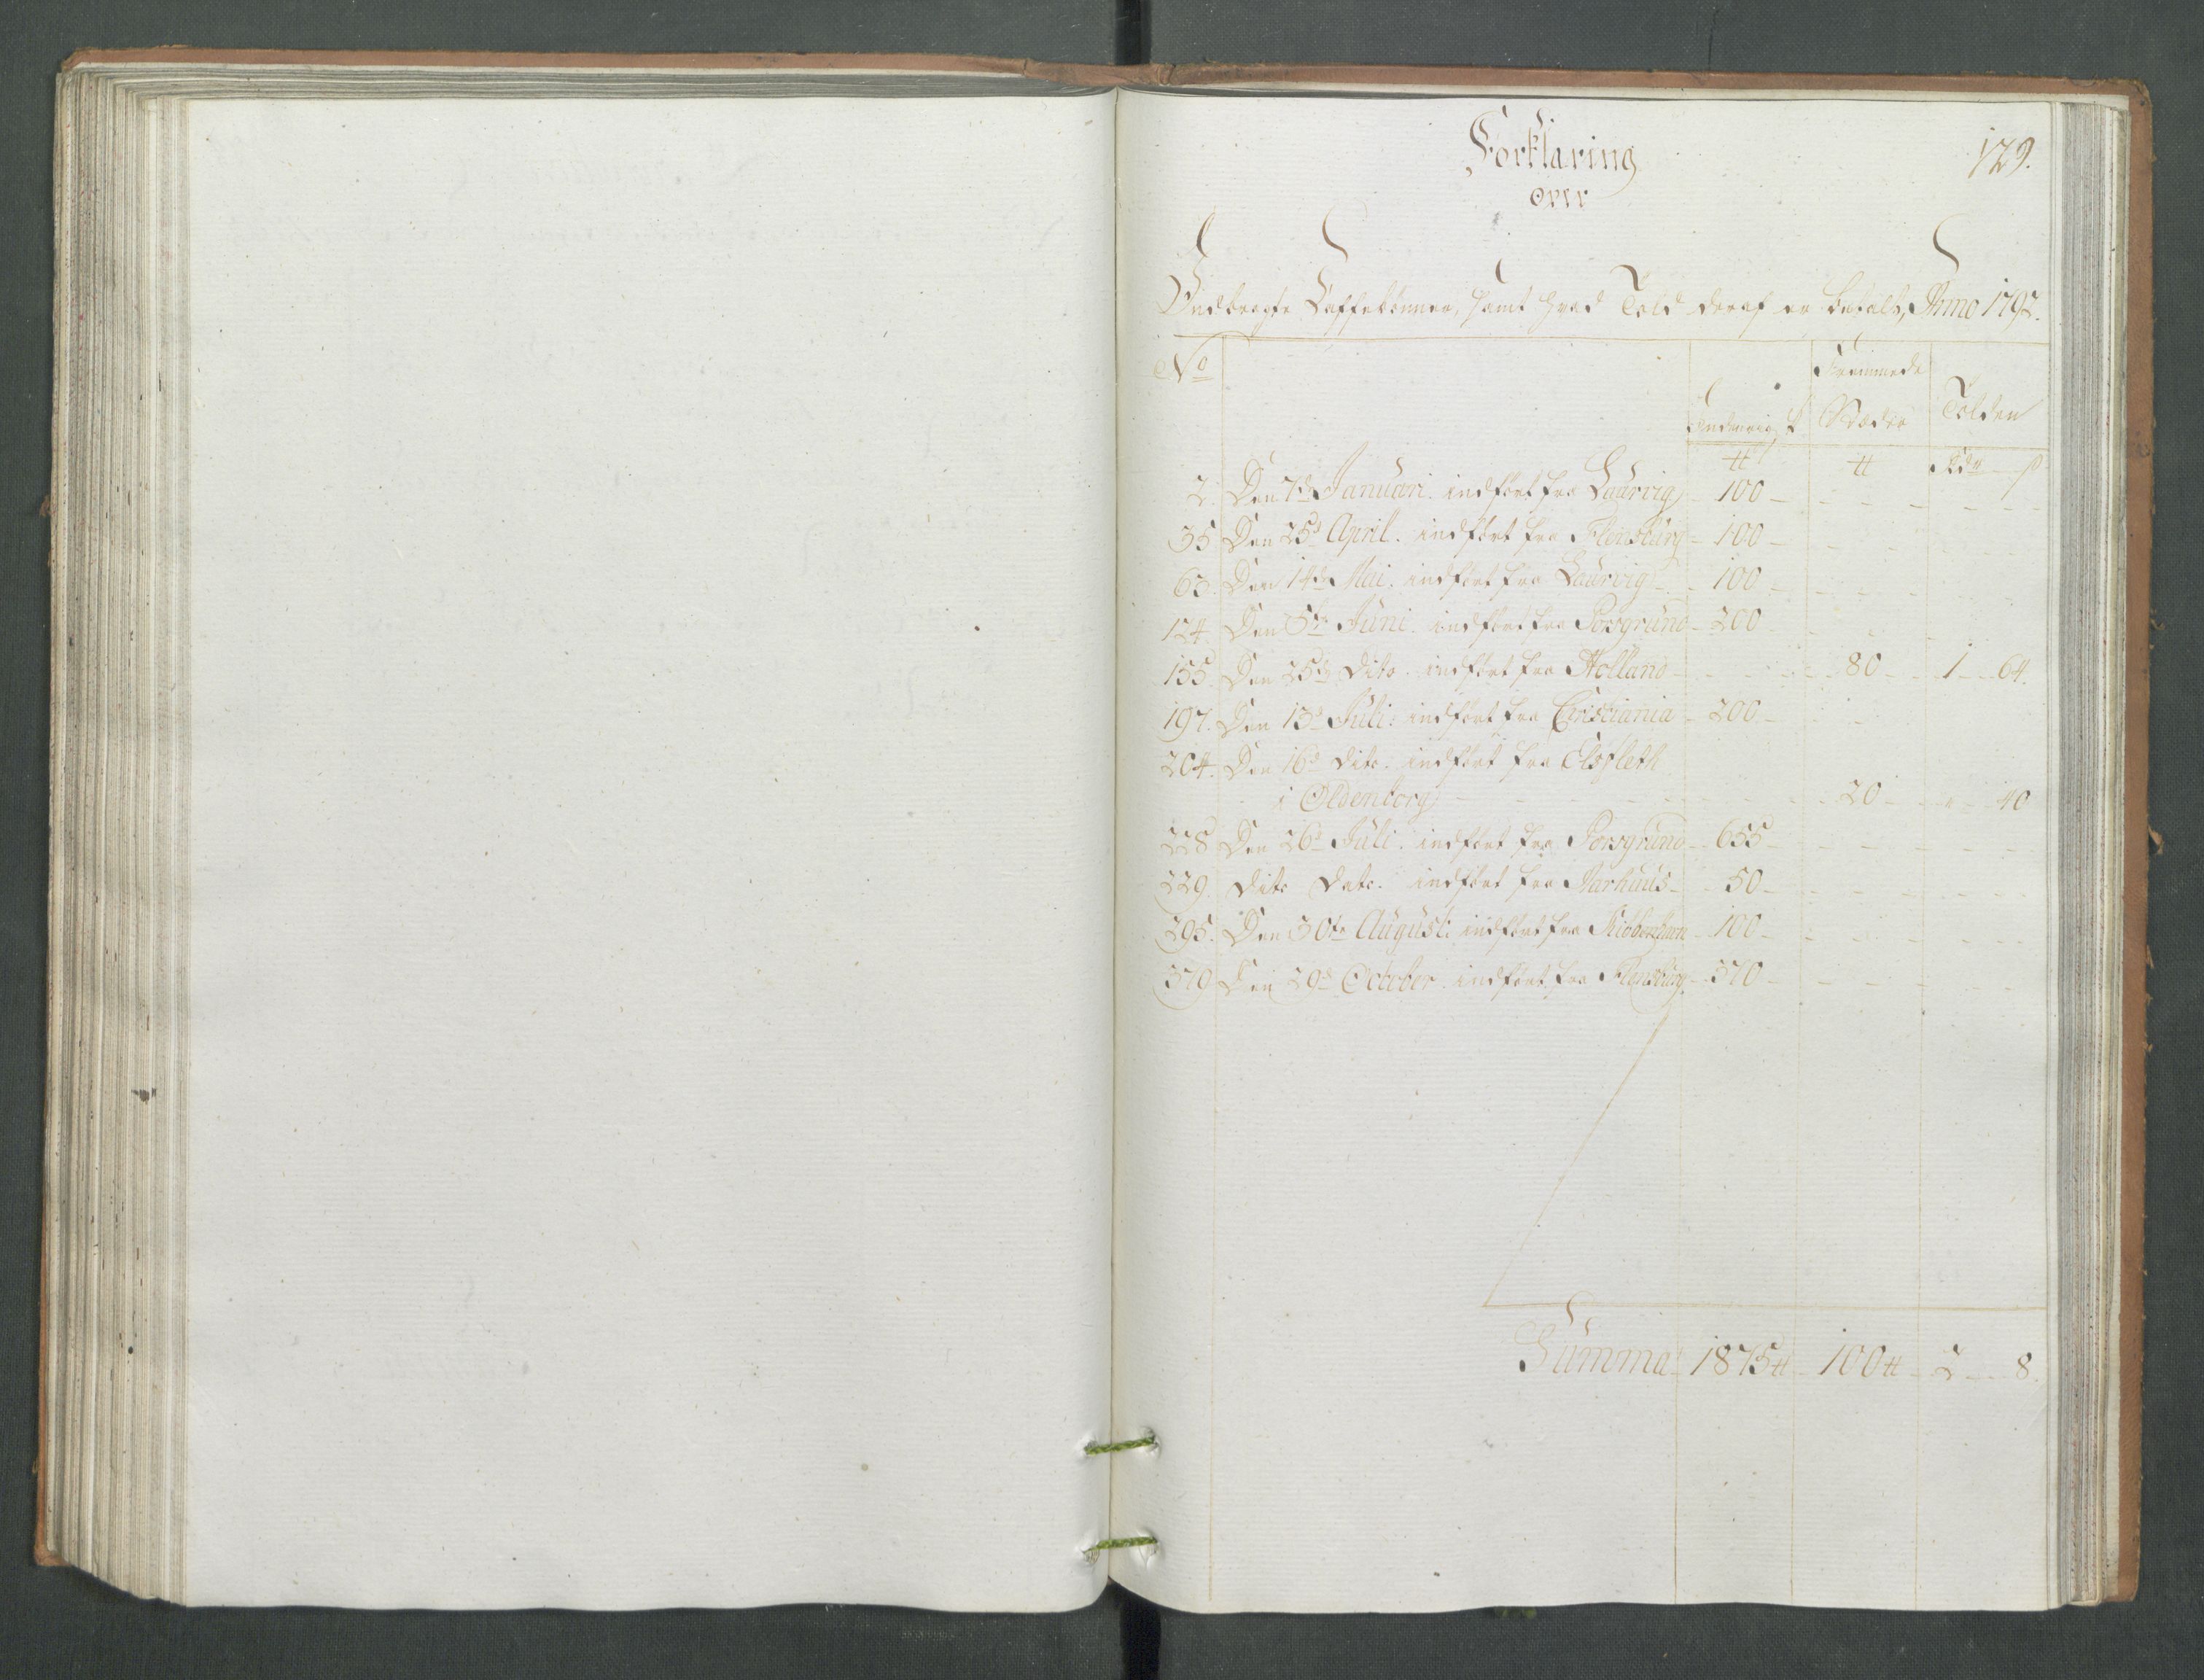 Forklaring
129.
over
Indbragte Caffebønner, samt hvad Told deraf er betalt, Anno 1792.
No
Indenrigs
Fremmede Stæder
Tolden
℔ ℔ Rdr ß
2. Den 7de Januari. indført fra Laurvig - 100 -
35 Den 25d April. indført fra Flensburg - 100 -
63. Den 14de Mai. indført fra Laurvig - 100 -
124. Den 5te Juni. indført fra Porsgrund - 200
155. Den 25de Dito. indført fra Holland - 80 - 1 - 64.
197. Den 13d Juli. indført fra Christiania - 200 -
204. Den 16d Dito. indført fra Elsfleth
i Oldenborg - 20 - " - 40
228 Den 26d Juli. indført fra Porsgrund - 655 -
229. Dito Dato. indført fra Aarhuus - 50 -
295. Den 30te August: indført fra Kiøbenhavn - 100 -
379 Den 29d October. indført fra Flensburg - 370 -
Summa - 1875 ℔ - 100 ℔ - 2 - 8.